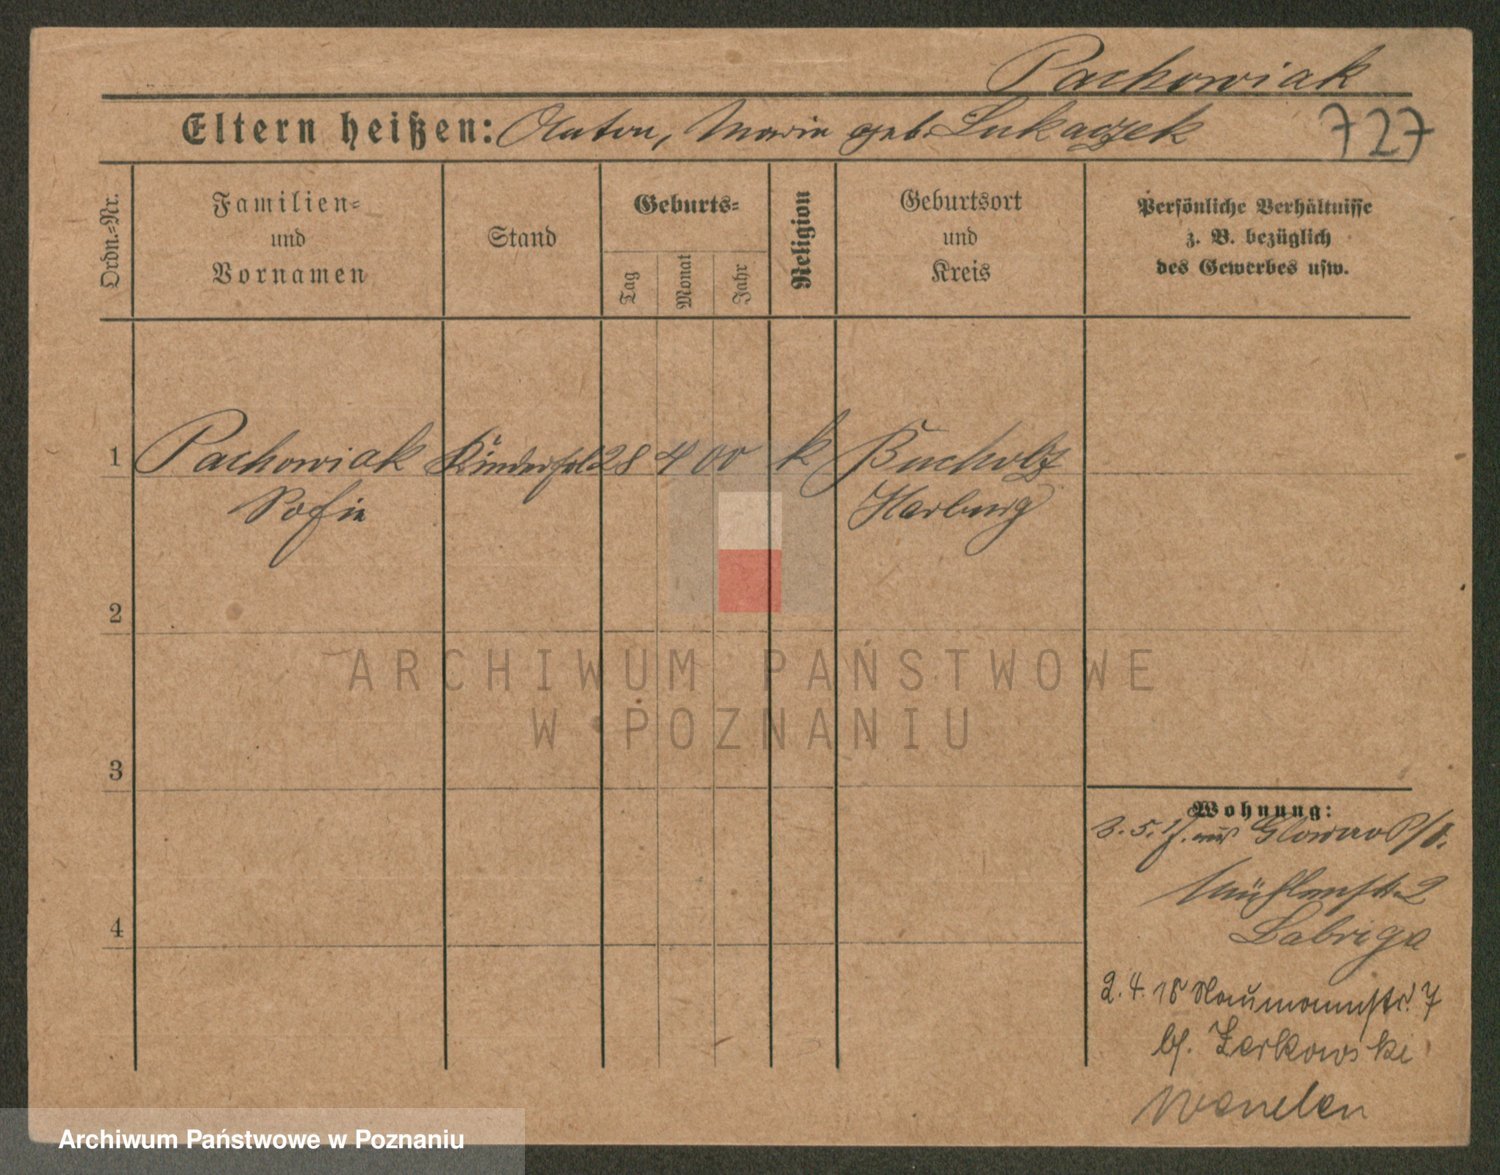 Pachowiak
Eltern heißen: Anton, Marie geb. Lukaczek
727
Ordn.-Nr.
Familien-
und
Vornamen
Stand
Geburts-
Tag
Monat
Jahr
Religion
Geburtsort
und
Kreis
Persönliche Verhältnisse
z. B. bezüglich
des Gewerbes usw.
1 Pachowiak Kinderfrl 28 4 00 k Bucholz
Sofie Harburg
2
3
4
ARCHIWUM PAŃSTWOWE
W POZNANIU
Wohnung:
3. 5. 17. aus Glowno P/O.
Mühlenstr. 2
Labriga
2. 4. 18 Naumannstr. 7
bf. Zerkowski
Archiwum Państwowe w Poznaniu